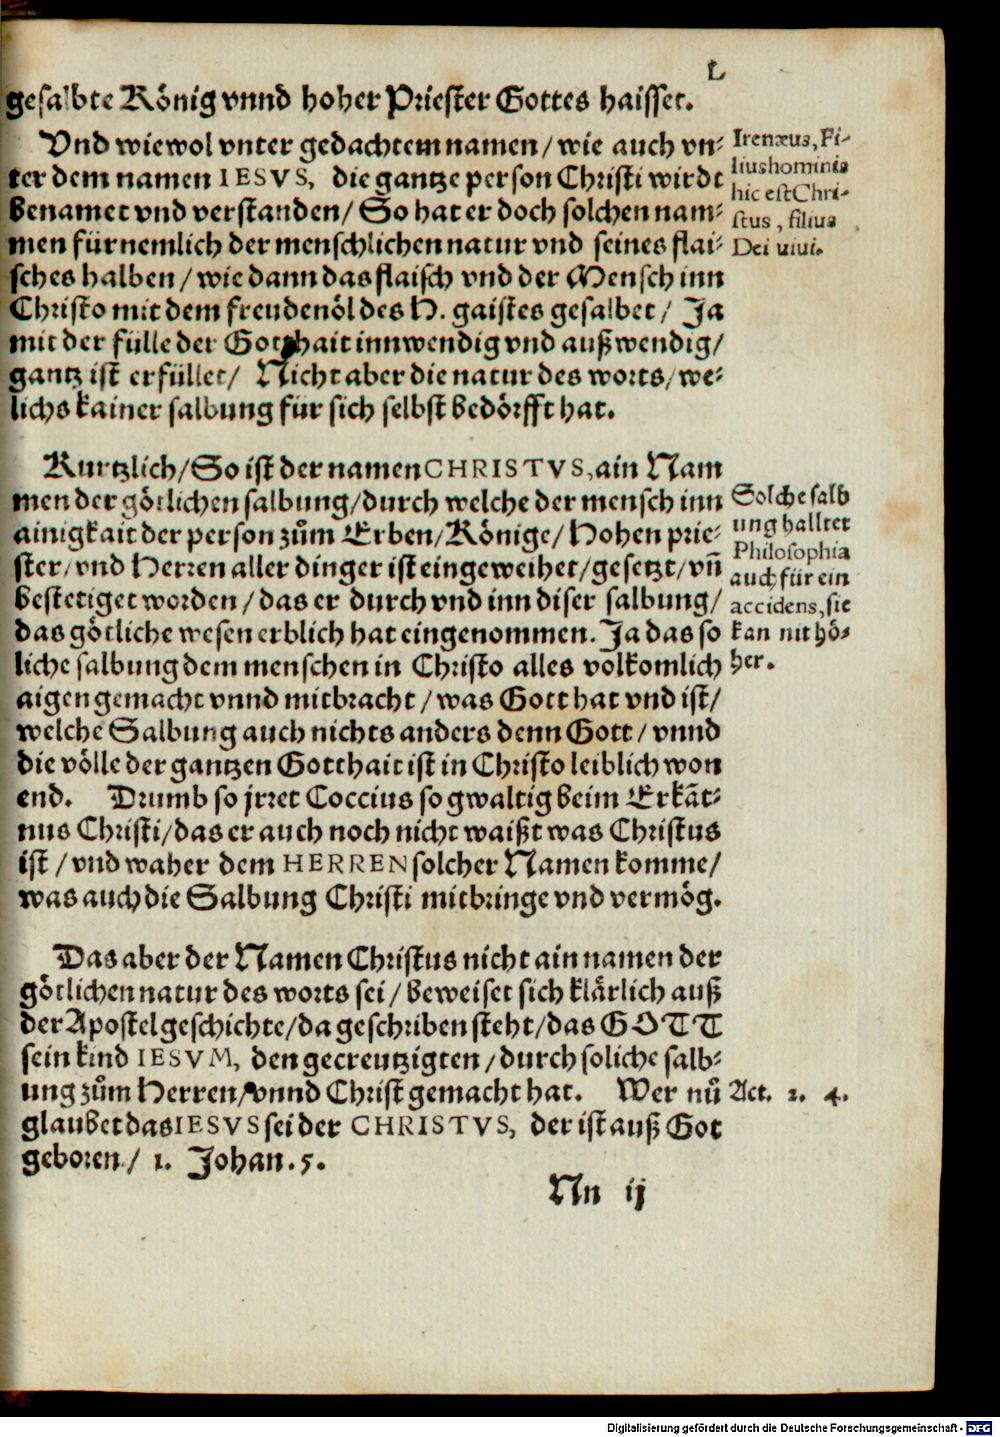 L
gesalbte König vnnd hoher Priester Gottes haisset.
Vnd wiewol vnter gedachtem namen / wie auch vn⸗
ter dem namen IESVS, die gantze person Christi wirdt
benamet vnd verstanden / So hat er doch solchen nam⸗
men fürnemlich der menschlichen natur vnd seines flai⸗
sches halben / wie dann das flaisch vnd der Mensch inn
Christo mit dem freudenöl des H. gaistes gesalbet / Ja
mit der fülle der Gotthait innwendig vnd außwendig /
gantz ist erfüllet / Nicht aber die natur des worts / we⸗
lichs kainer salbung für sich selbst bedörfft hat.
Irenæus, Fi-
lius hominis
hic est Chri-
stus, filius
Dei uiui.
Kurtzlich / So ist der namen CHRISTVS, ain Nam
men der götlichen salbung / durch welche der mensch inn
ainigkait der person zům Erben / Könige / Hohen prie⸗
ster / vnd Herren aller dinger ist eingeweihet / gesetzt / vñ
bestetiget worden / das er durch vnd inn diser salbung /
das götliche wesen erblich hat eingenommen. Ja das so
liche salbung dem menschen in Christo alles volkomlich
aigen gemacht vnnd mitbracht / was Gott hat vnd ist /
welche Salbung auch nichts anders denn Gott / vnnd
die völle der gantzen Gotthait ist in Christo leiblich won
end. Drumb so jrret Coccius so gwaltig beim Erkãt⸗
nus Christi / das er auch noch nicht waißt was Christus
ist / vnd waher dem HERREN solcher Namen komme /
was auch die Salbung Christi mitbringe vnd vermög.
Solche salb
ung halltet
Philosophia
auch für ein
accidens, sie
kan nit hö⸗
her.
Das aber der Namen Christus nicht ain namen der
götlichen natur des worts sei / beweiset sich klärlich auß
der Apostelgeschichte / da geschriben steht / das GOTT
sein kind IESVM, den gecreutzigten / durch soliche salb⸗
ung zům Herren / vnnd Christ gemacht hat. Wer nů
glaubet das IESVS sei der CHRISTVS, der ist auß Got
geboren / 1. Johan. 5.
Act. 2. 4.
Nn ij
Digitalisierung gefördert durch die Deutsche Forschungsgemeinschaft - DFG